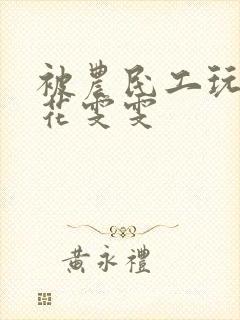 被農民工玩
花雯雯
黃永禮